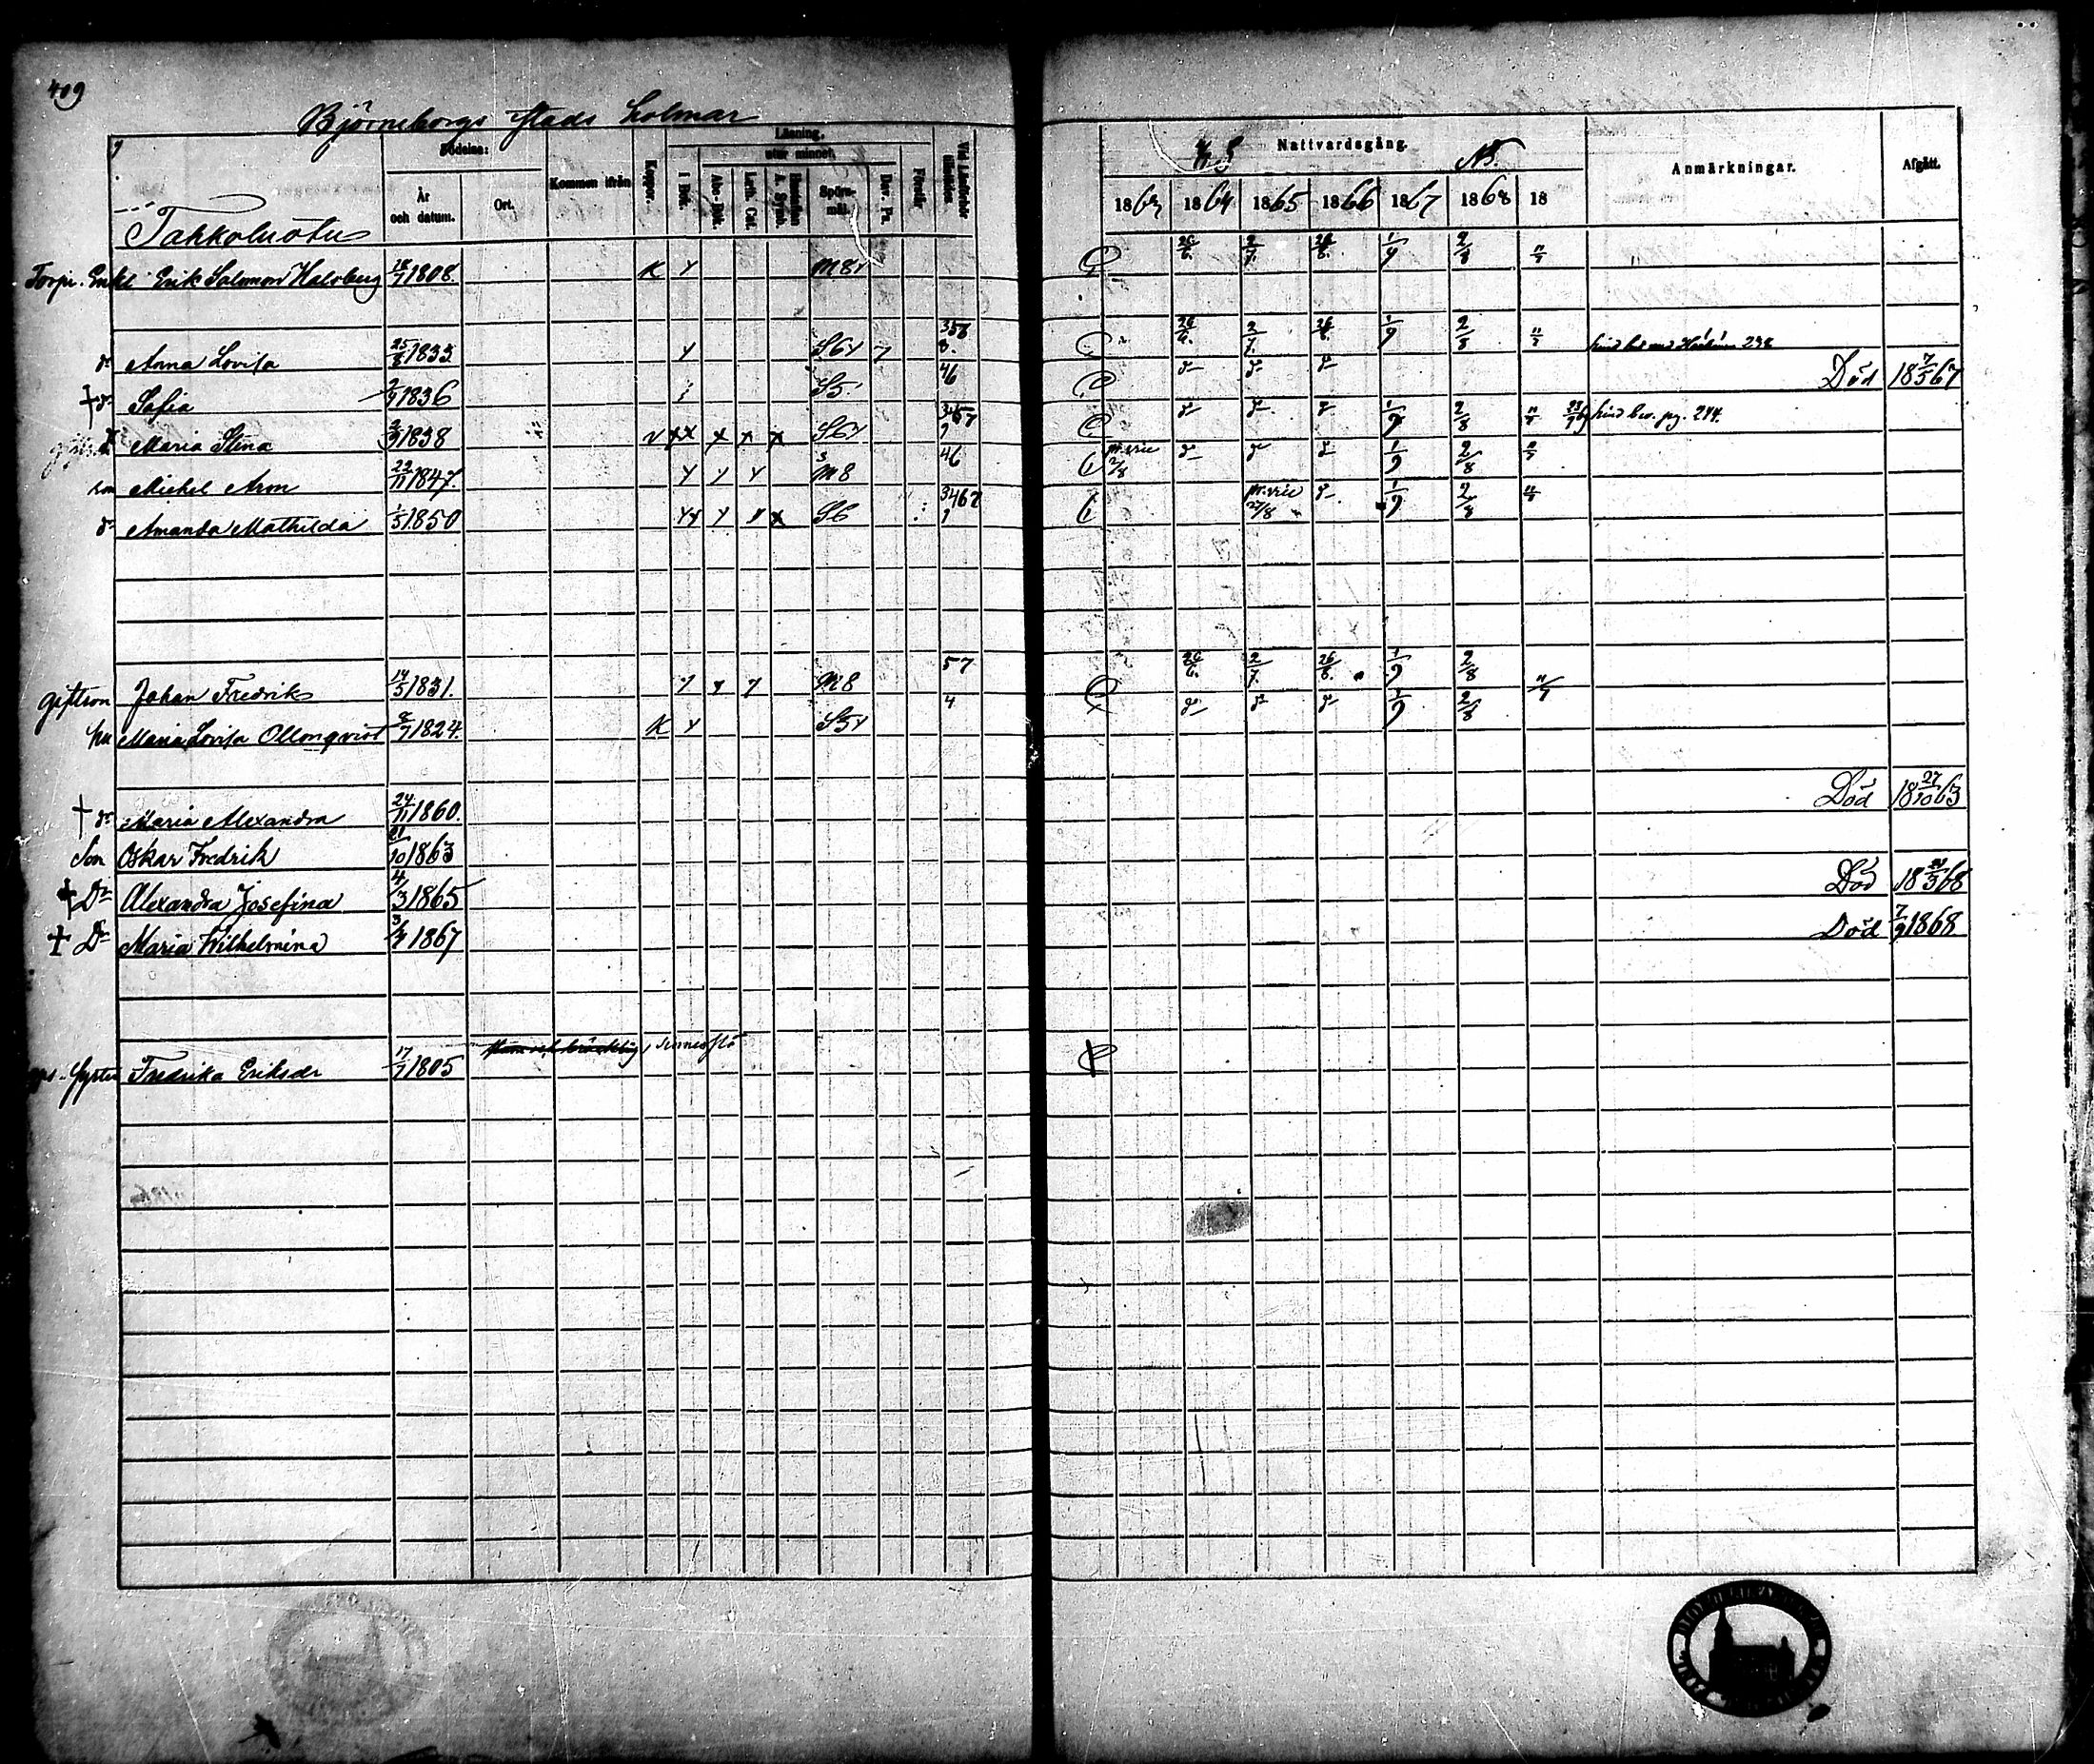 409
Björneborgs Stads holmar
Födelse:
År och datum.
Ort.
Kommen ifrån
Koppor.
Läsning,
utur minnet.
I Bok.
Abc-Bok.
Luth. Cat.
Hustaflan A. Symb.
Spörs-mål.
Dav. Ps.
Förstår
Vid Läsförhör tillstädes.
Nattvardsgång.
No.
1863 1864 1865 1866 1867 1868 18
Anmärkningar.
Afgått.
Tahkoluoto
Torpr. Enkl. Erik Salomon Halsberg 18/7 1808. K Y M8Y 26/6. 2/7. 26/8. 1/9 2/8
dr Anna Lovisa 25/8 1833 Y S6Y 7 358 26/6. 2/7. 26/8. 1/9 2/8 238
† dr Sofia 2/9 1836 S5 46 Död 18 7/5 67
Maria Stina 2/9 1838 S6Y 3457 1/9 2/8 pg. 244.
son Michel Aron 22/11 1847. Y Y Y M8 46 2/8 1/9 2/8
dr Amanda Mathilda 1/5 1850 S6 3467 27/8 1/9 2/8
gift son Johan Fredrik 14/5 1831. Y Y Y M8 57 26/6. 2/7. 26/8. 1/9 2/8
hu Maria Lovisa Ollonqvist 8/7 1824. K Y S5Y 4 1/9 2/8 11/7
† dr Maria Alexandra 24/11 1860. Död 18 27/10 63
Son Oskar Fredrik 21/10 1863
† Dr Alexandra Josefina 4/3 1865 Död 18 21/5 68
† Dr Maria Wilhelmina 3/4 1867 Död 7/9 1868
Syster Fredrika Eriksdr 17/7 1805 sinnesslö